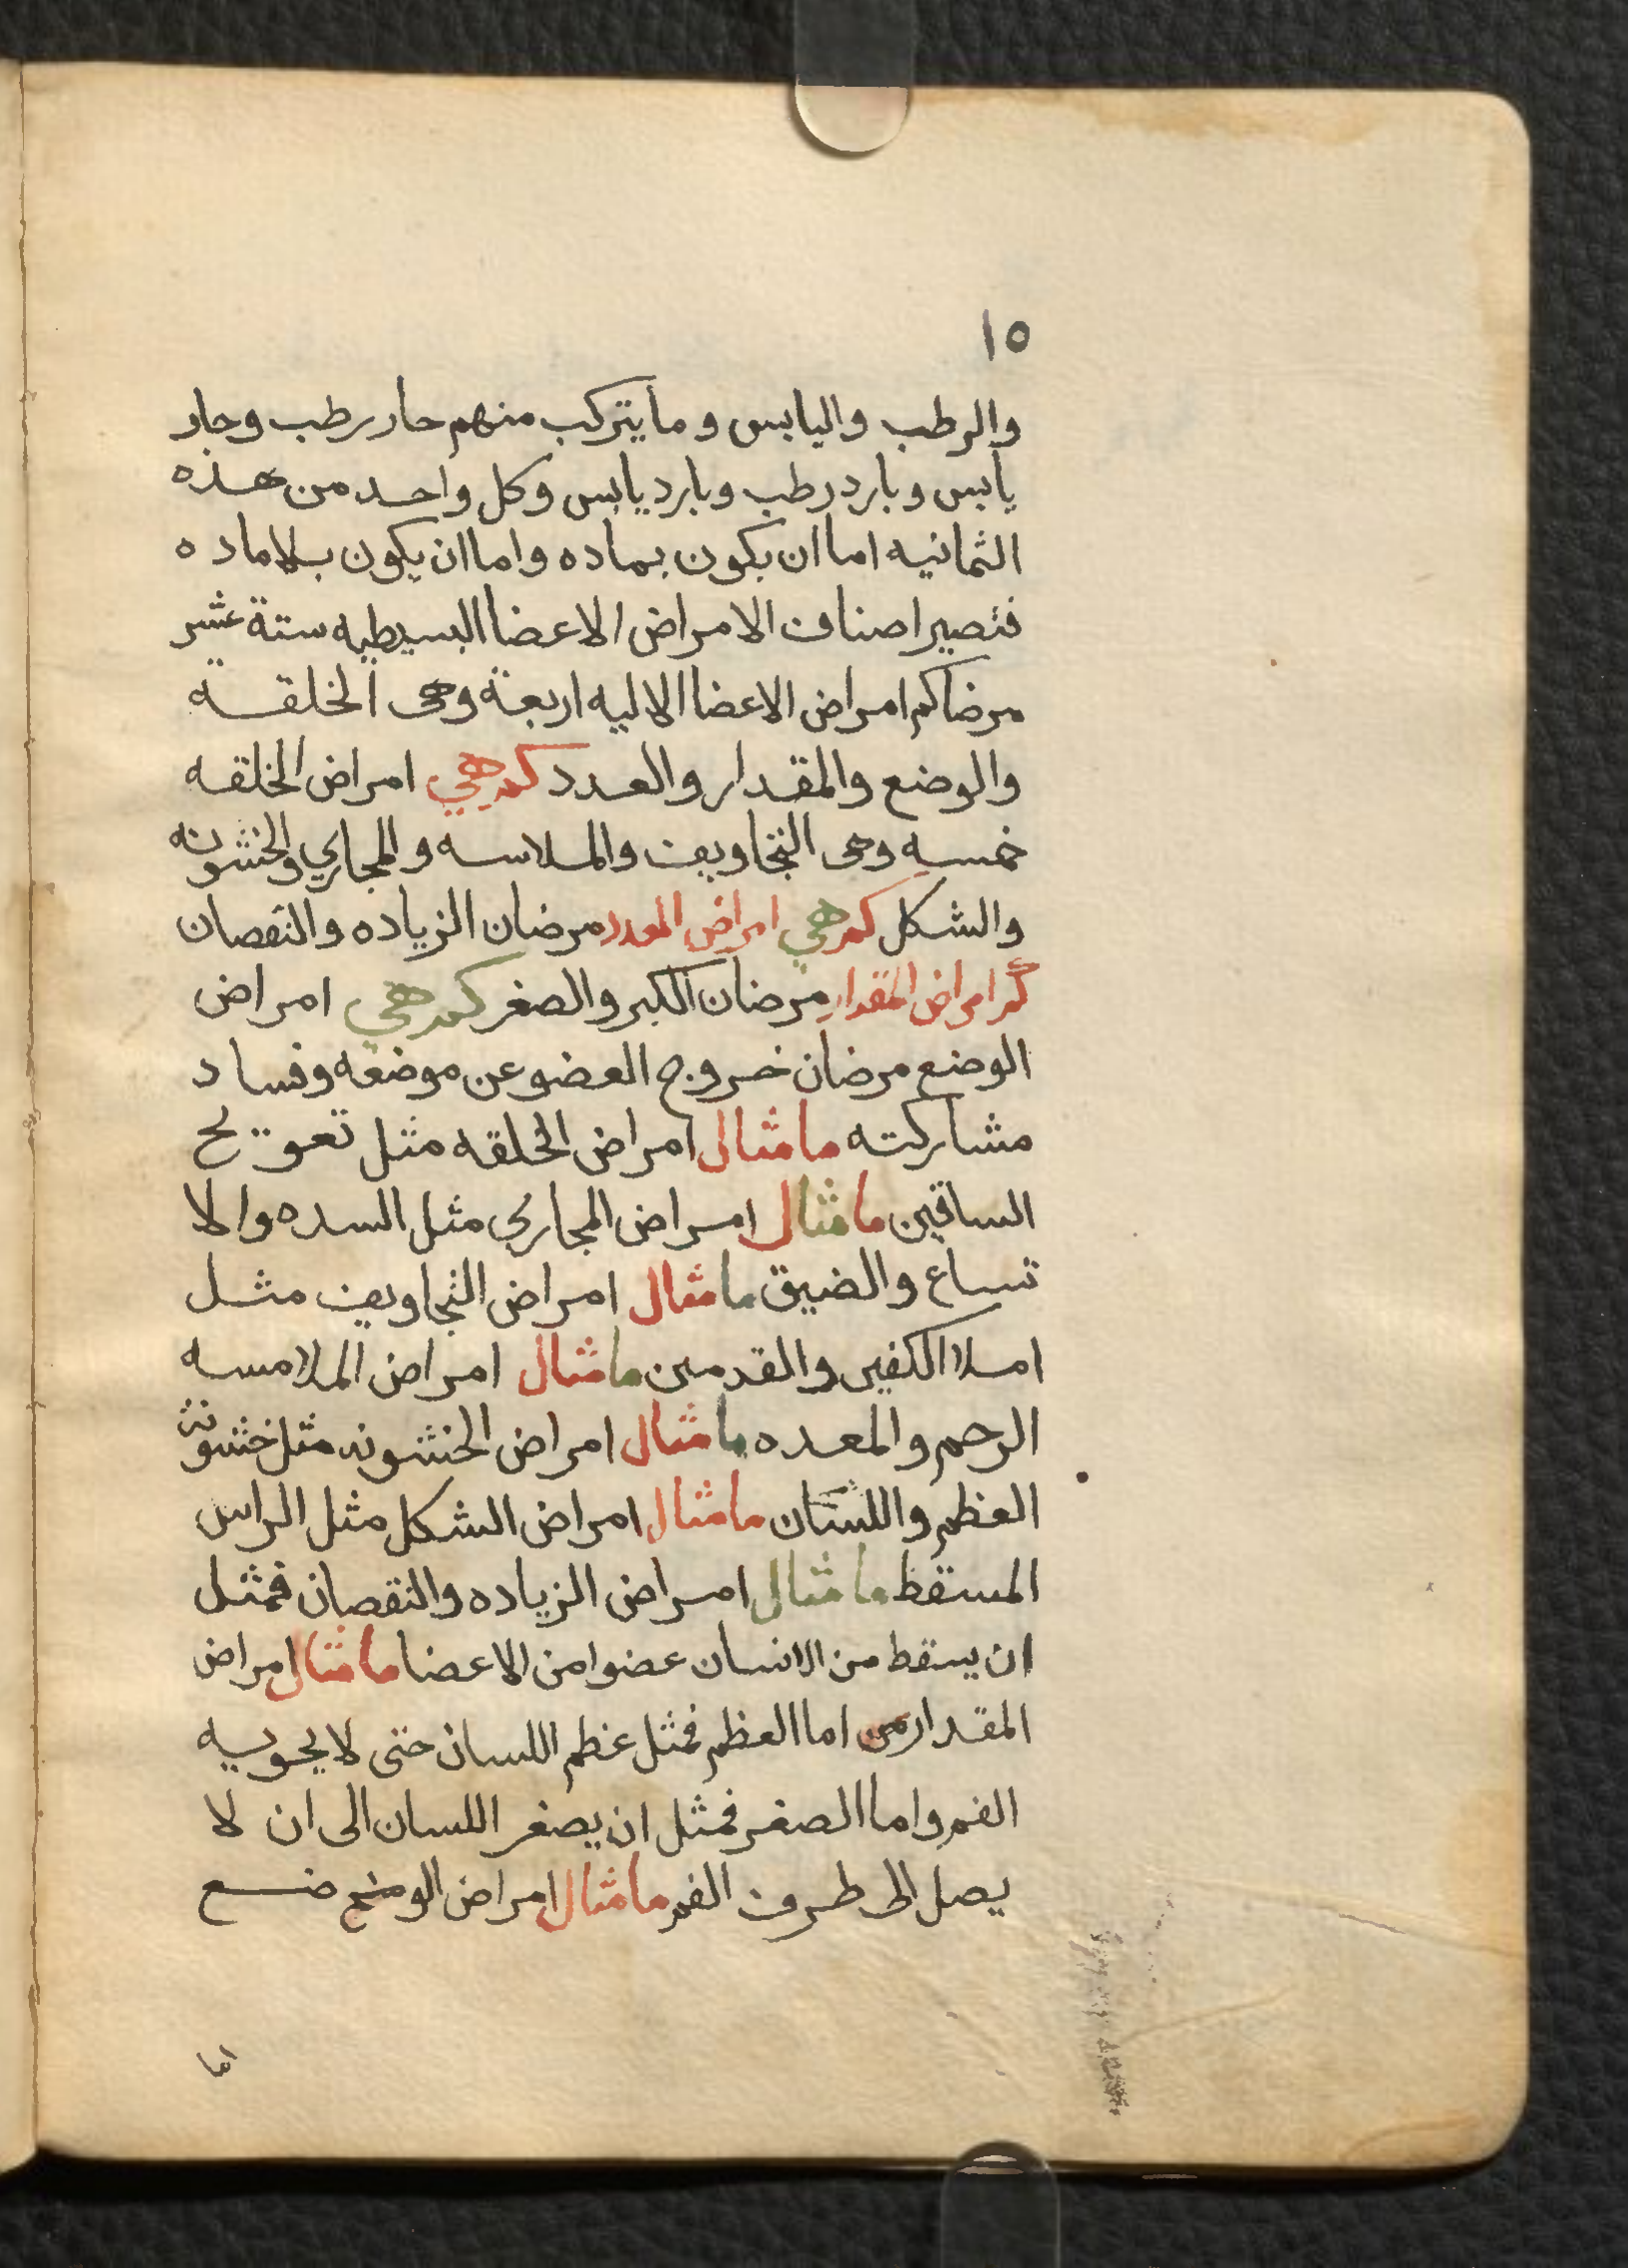 ١٥
والرطب واليابس وما يتركب منهم حار رطب وحار
يابس وبارد رطب وبارد يابس وكل واحد من هذه
الثمانيه اما ان يكون بماده واما ان يكون بلا ماده
فتصير اصناف الامراض الاعضا البسيطيه ستة عشر
مرضا كم امراض الاعضا الاليه اربعة وهى الخلقة
والوضع والمقدار والعدد كم هي امراض الخلقه
خمسه وهى التجاويف والملاسه والمجاري والخشونه
والشكل كم هي امراض العدد مرضان الزياده والنقصان
كم امراض المقدار مرضان الكبر والصغر كم هي امراض
الوضع مرضان خروج العضو عن موضعه وفساد
مشاركته ما مثال امراض الخلقه مثل تعويج
الساقين ما مثال امراض المجاري مثل السده والا
تساع والضيق ما مثال امراض التجاويف مثل
املا الكفين والقدمين ما مثال امراض الملامسه
الرحم والمعده ما مثال امراض الخشونه مثل خشونة
العظم واللسان ما مثال امراض الشكل مثل الراس
المسقط ما مثال امراض الزياده والنقصان فمثل
ان يسقط من الانسان عضوا من الاعضا ما مثال امراض
المقدار من اما العظم فمثل عظم اللسان حتى لا يحويه
الفم واما الصغر فمثل ان يصغر اللسان الى ان لا
يصل الى طرف الفم ما مثال امراض الوضع ضع
اما